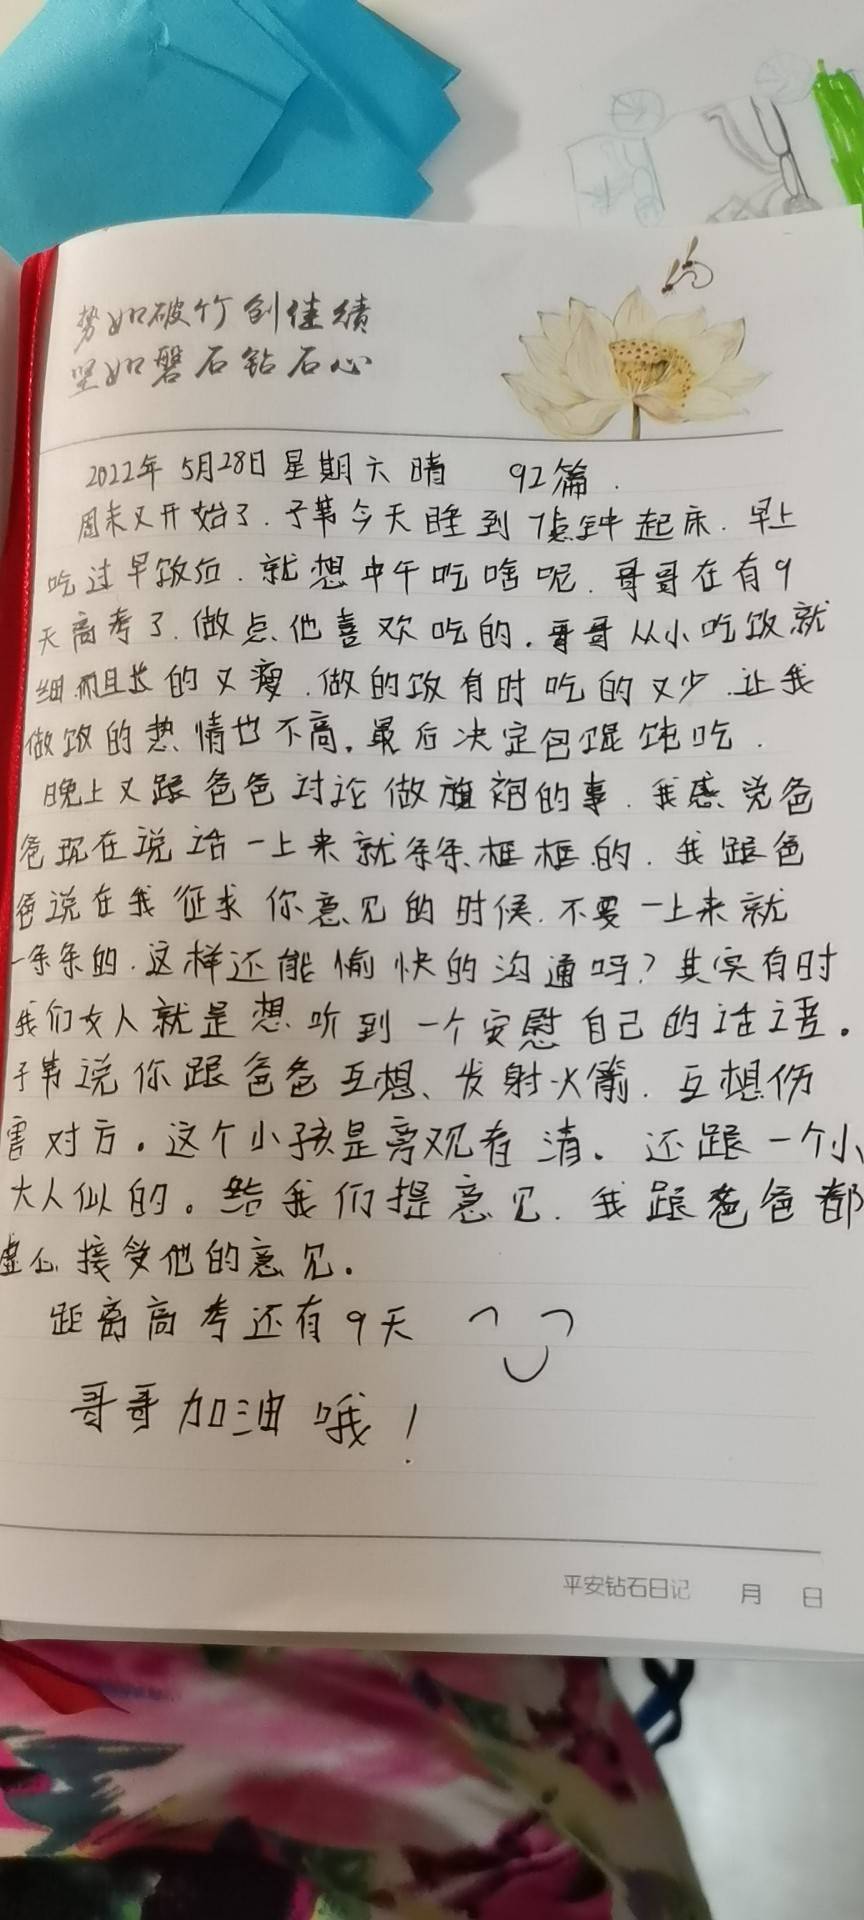 势如破竹创佳绩
坚如磐石钻石心
2022年 5月28日 星期六 晴 92篇.
周末又开始了.子苇今天睡到7点钟起床.早上
吃过早饭后.就想中午吃啥呢.哥哥在有9
天高考了.做点他喜欢吃的.哥哥从小吃饭就
细而且长的又瘦.做的饭有时吃的又少.让我
做饭的热情也不高.最后决定包混饨吃.
晚上又跟爸爸讨论做旗袍的事.我感觉爸
爸现在说话一上来就条条框框的.我跟爸
爸说在我征求你意见的时候.不要一上来就
一条条的.这样还能愉快的沟通吗?其实有时
我们女人就是想听到一个安慰自己的话语。
子苇说你跟爸爸互想、发射火箭.互想伤
害对方。这个小孩是旁观者清。还跟一个小
大人似的。给我们提意见.我跟爸爸都
虚心接受他的意见。
距离高考还有9天
哥哥加油哦!
平安钻石日记 月 日